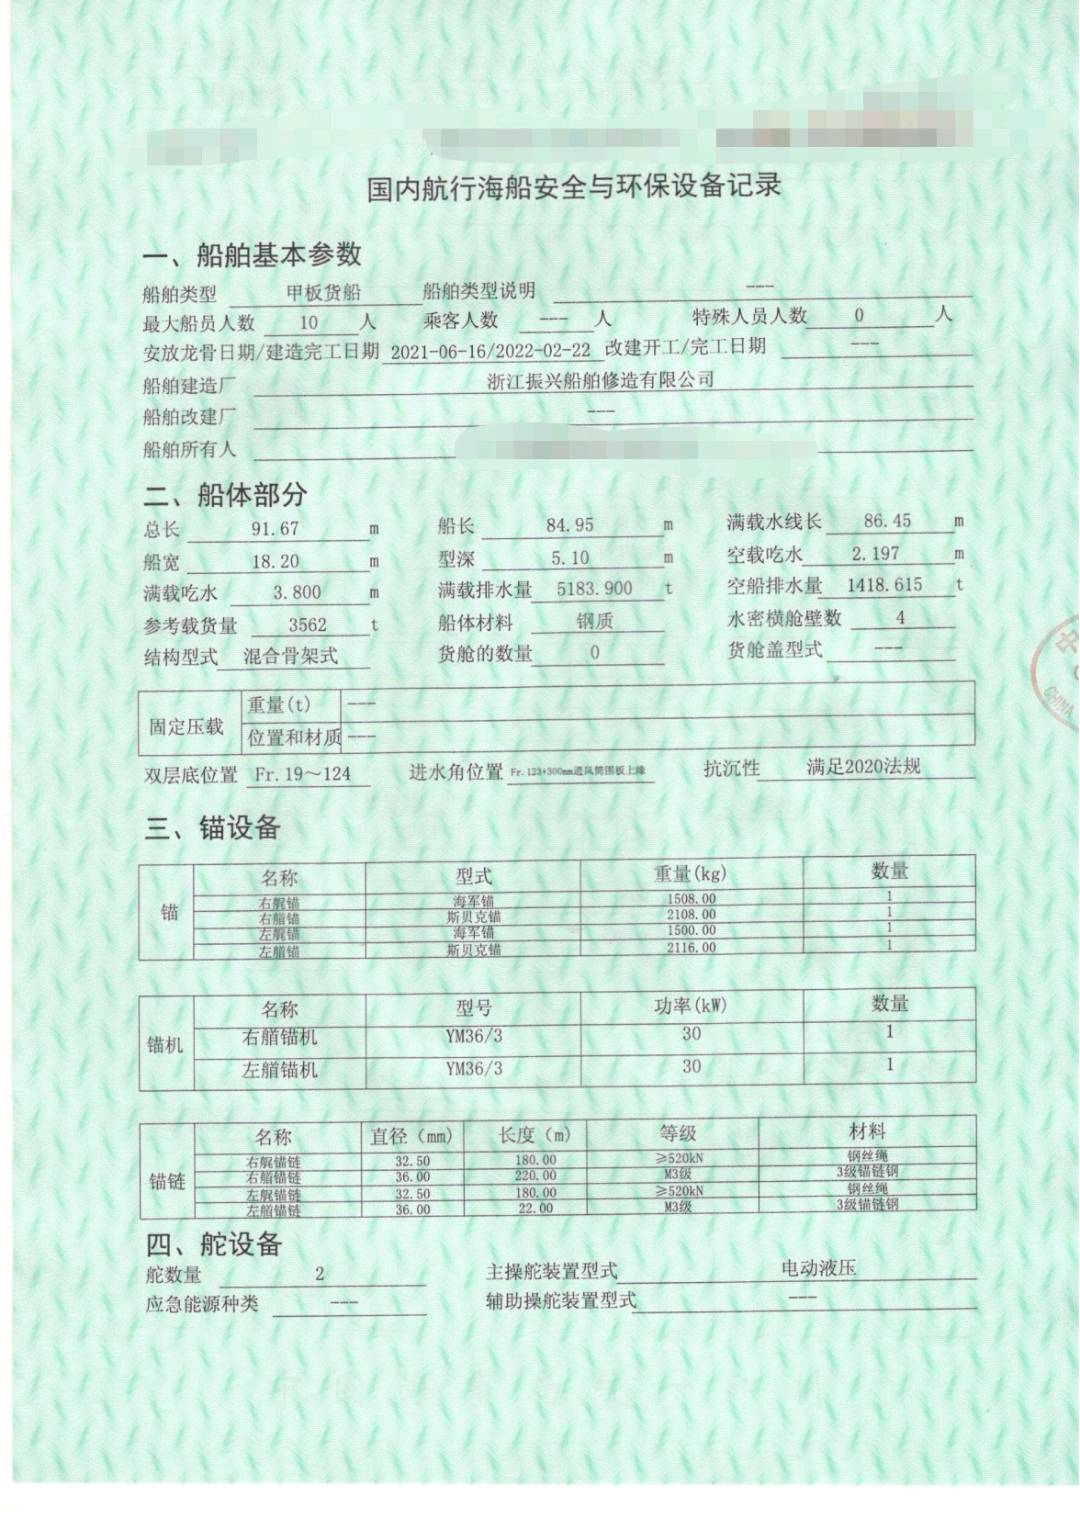 国内航行海船安全与环保设备记录
一、船舶基本参数
船舶类型 甲板货船 船舶类型说明 ---
最大船员人数 10 人 乘客人数 --- 人 特殊人员人数 0 人
安放龙骨日期/建造完工日期 2021-06-16/2022-02-22 改建开工/完工日期 ---
船舶建造厂 浙江振兴船舶修造有限公司
船舶改建厂 ---
船舶所有人
二、船体部分
总长 91.67 m 船长 84.95 m 满载水线长 86.45 m
船宽 18.20 m 型深 5.10 m 空载吃水 2.197 m
满载吃水 3.800 m 满载排水量 5183.900 t 空船排水量 1418.615 t
参考载货量 3562 t 船体材料 钢质 水密横舱壁数 4
结构型式 混合骨架式 货舱的数量 0 货舱盖型式 ---
固定压载 重量(t) ---
位置和材质 ---
双层底位置 Fr.19～124 进水角位置 Fr.123+300mm通风筒围板上缘 抗沉性 满足2020法规
三、锚设备
锚 名称 型式 重量(kg) 数量
右艉锚 海军锚 1508.00 1
右艏锚 斯贝克锚 2108.00 1
左艉锚 海军锚 1500.00 1
左艏锚 斯贝克锚 2116.00 1
锚机 名称 型号 功率(kW) 数量
右艏锚机 YM36/3 30 1
左艏锚机 YM36/3 30 1
锚链 名称 直径（mm） 长度（m） 等级 材料
右艉锚链 32.50 180.00 ≥520kN 钢丝绳
右艏锚链 36.00 220.00 M3级 3级锚链钢
左艉锚链 32.50 180.00 ≥520kN 钢丝绳
左艏锚链 36.00 22.00 M3级 3级锚链钢
四、舵设备
舵数量 2 主操舵装置型式 电动液压
应急能源种类 --- 辅助操舵装置型式 ---
中
CHINA